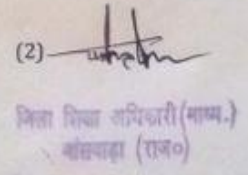 (2)
जिला शिक्षा अधिकारी (माध्य.)
बांसवाड़ा (राज०)